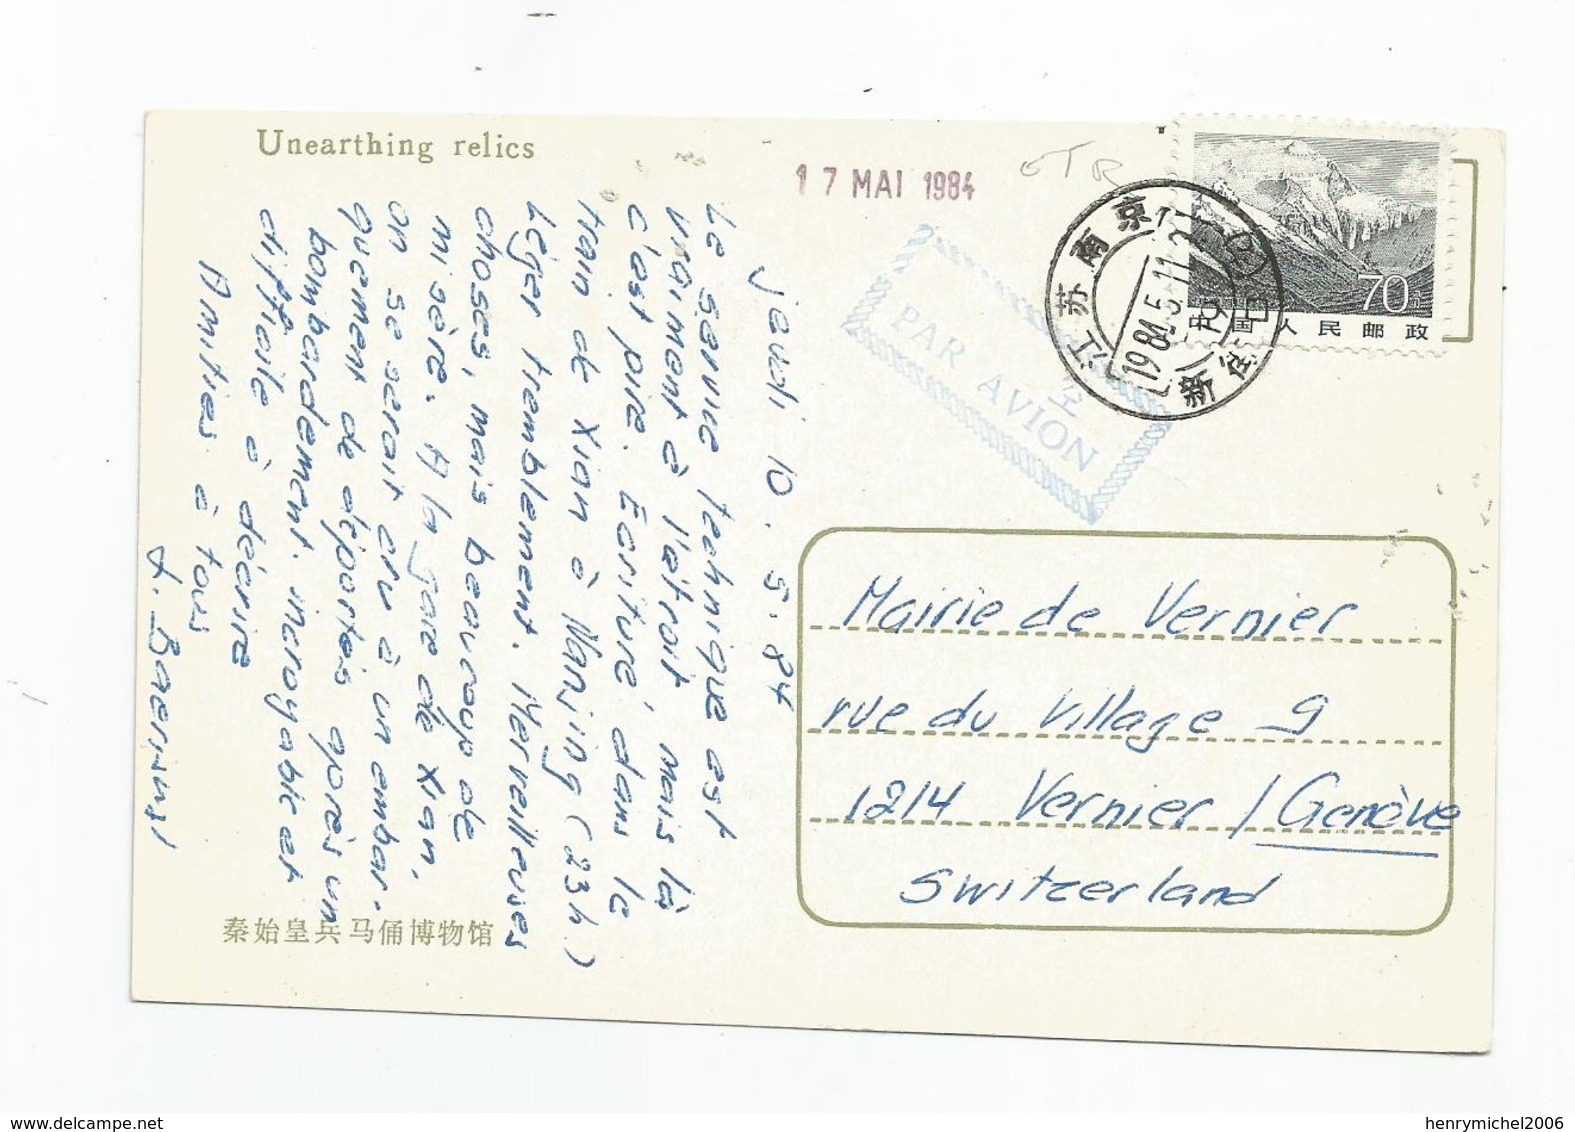 Unearthing relics
17 MAI 1984
GTR
江苏南京
1984.5.11.21
新街口
70分
中国人民邮政
PAR AVION
jeudi 10.5.84
Le service technique est
vraiment à l'étroit, mais là
c'est pire. Ecriture' dans le
train de Xian à Nanjing (23h.)
Léger tremblement. Merveilleuses
choses, mais beaucoup de
misère. A la gare de Xian,
on se serait cru à un embar-
quement de déportés après un
bombardement. incroyable et
difficile à décrire
Amitiés à tous
Mairie de Vernier
rue du Village 9
1214 Vernier / Genève
Switzerland
秦始皇兵马俑博物馆
delcampe.net
henrymichel2006